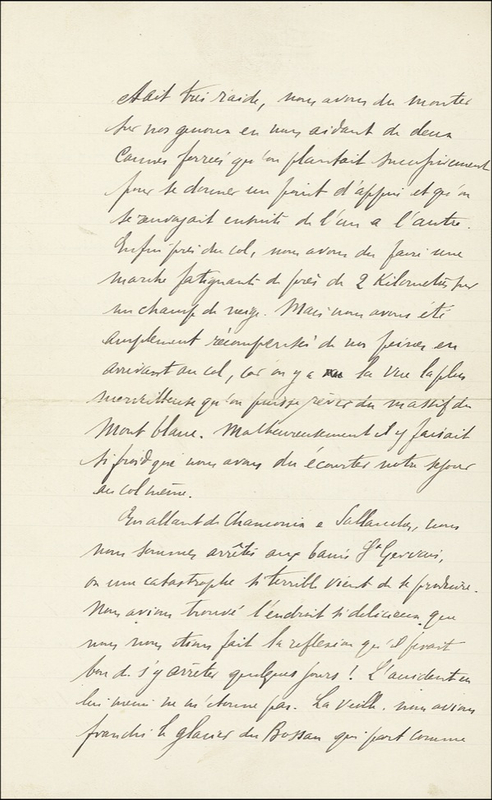 était très raide, nous avons du monter
sur nos genoux en nous aidant de deux
cannes ferrées qu'on plantait successivement
pour se donner un point d'appui et qu'on
se renvoyait ensuite de l'un a l'autre.
Enfin près du col, nous avons du faire une
marche fatigante de près de 2 Kilometres sur
un champ de neige. Mais nous avons été
amplement récompensés de nos peines en
arrivant au col, car on y a la vue la plus
merveilleuse qu'on puisse rêver du massif du
Mont blanc. Malheureusement il y faisait
si froid que nous avons du écourter notre séjour
au col même.
En allant de Chamonix a Sallanches, nous
nous sommes arrêtés aux bains St Gervais,
ou une catastrophe si terrible vient de se produire.
Nous avions trouvé l'endroit si delicieux que
nous nous étions fait la reflexion qu'il ferait
bon de s'y arrêter quelques jours ! L'accident en
lui même ne m'étonne pas. La veille, nous avions
franchi le glacier du Bossan qui part comme